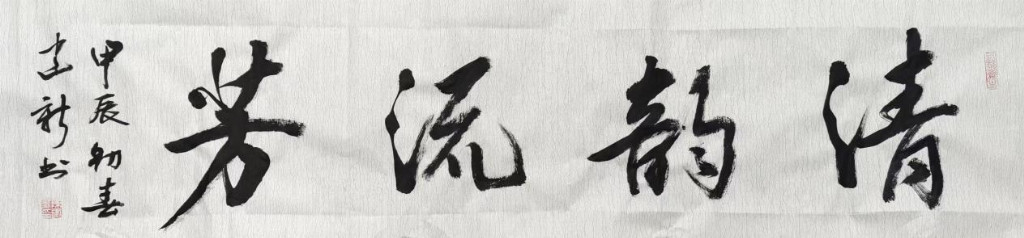 清韵流芳
甲辰初春
建新书